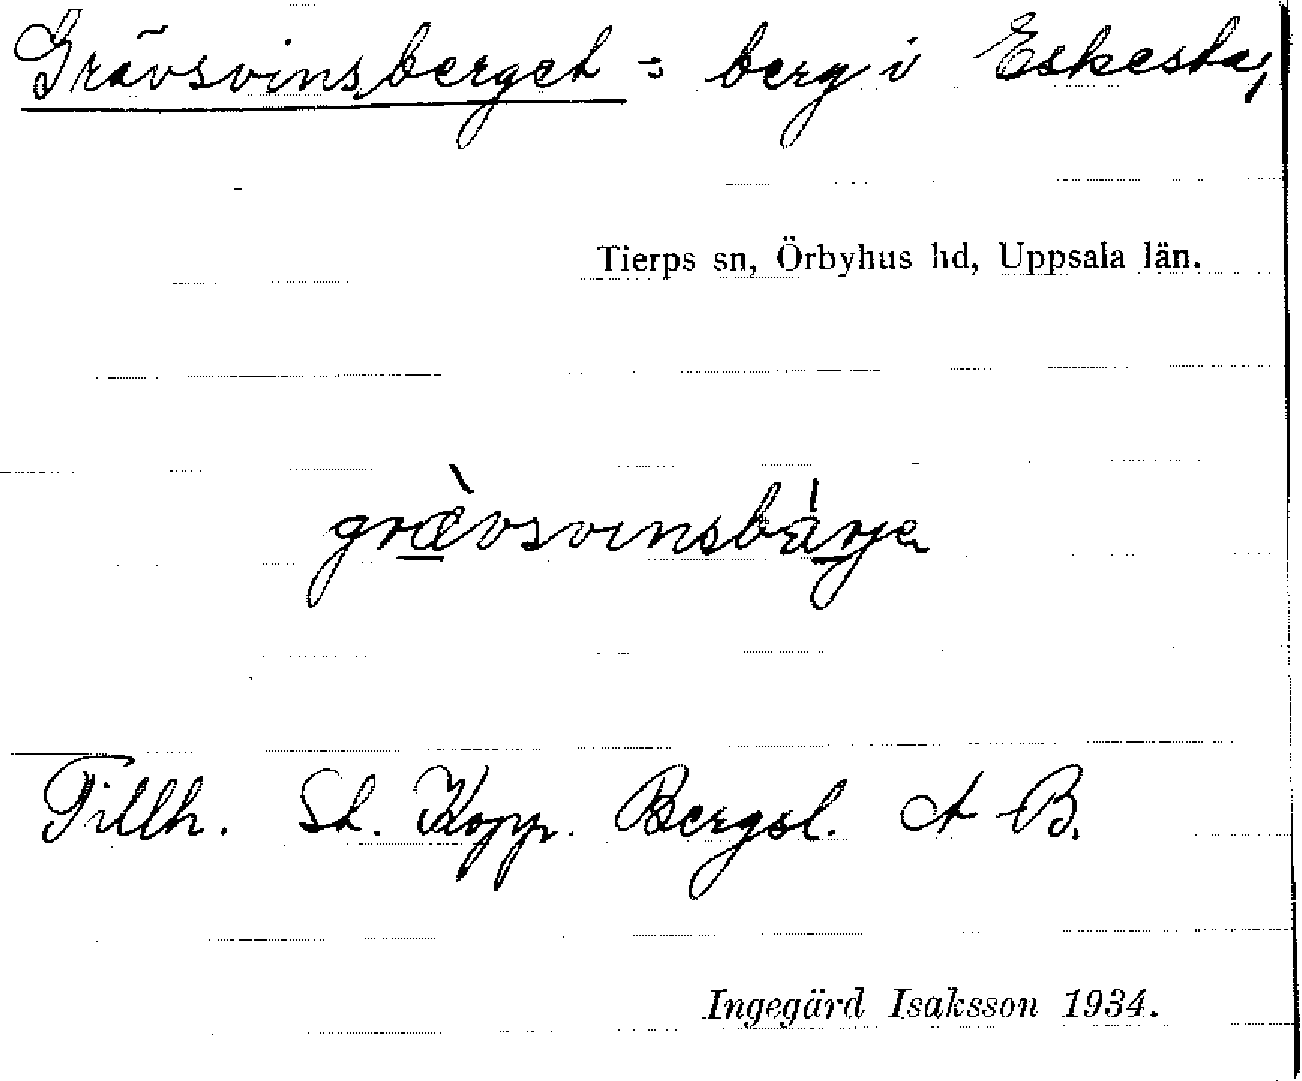 Grävsvinsberget = berg i Eskesta,
Tierps sn, Örbyhus hd, Uppsala län.
græ̀vsvinsbä̀rja
Tillh. St. Kopp. Bergsl. A B.
Ingegärd Isaksson 1934.